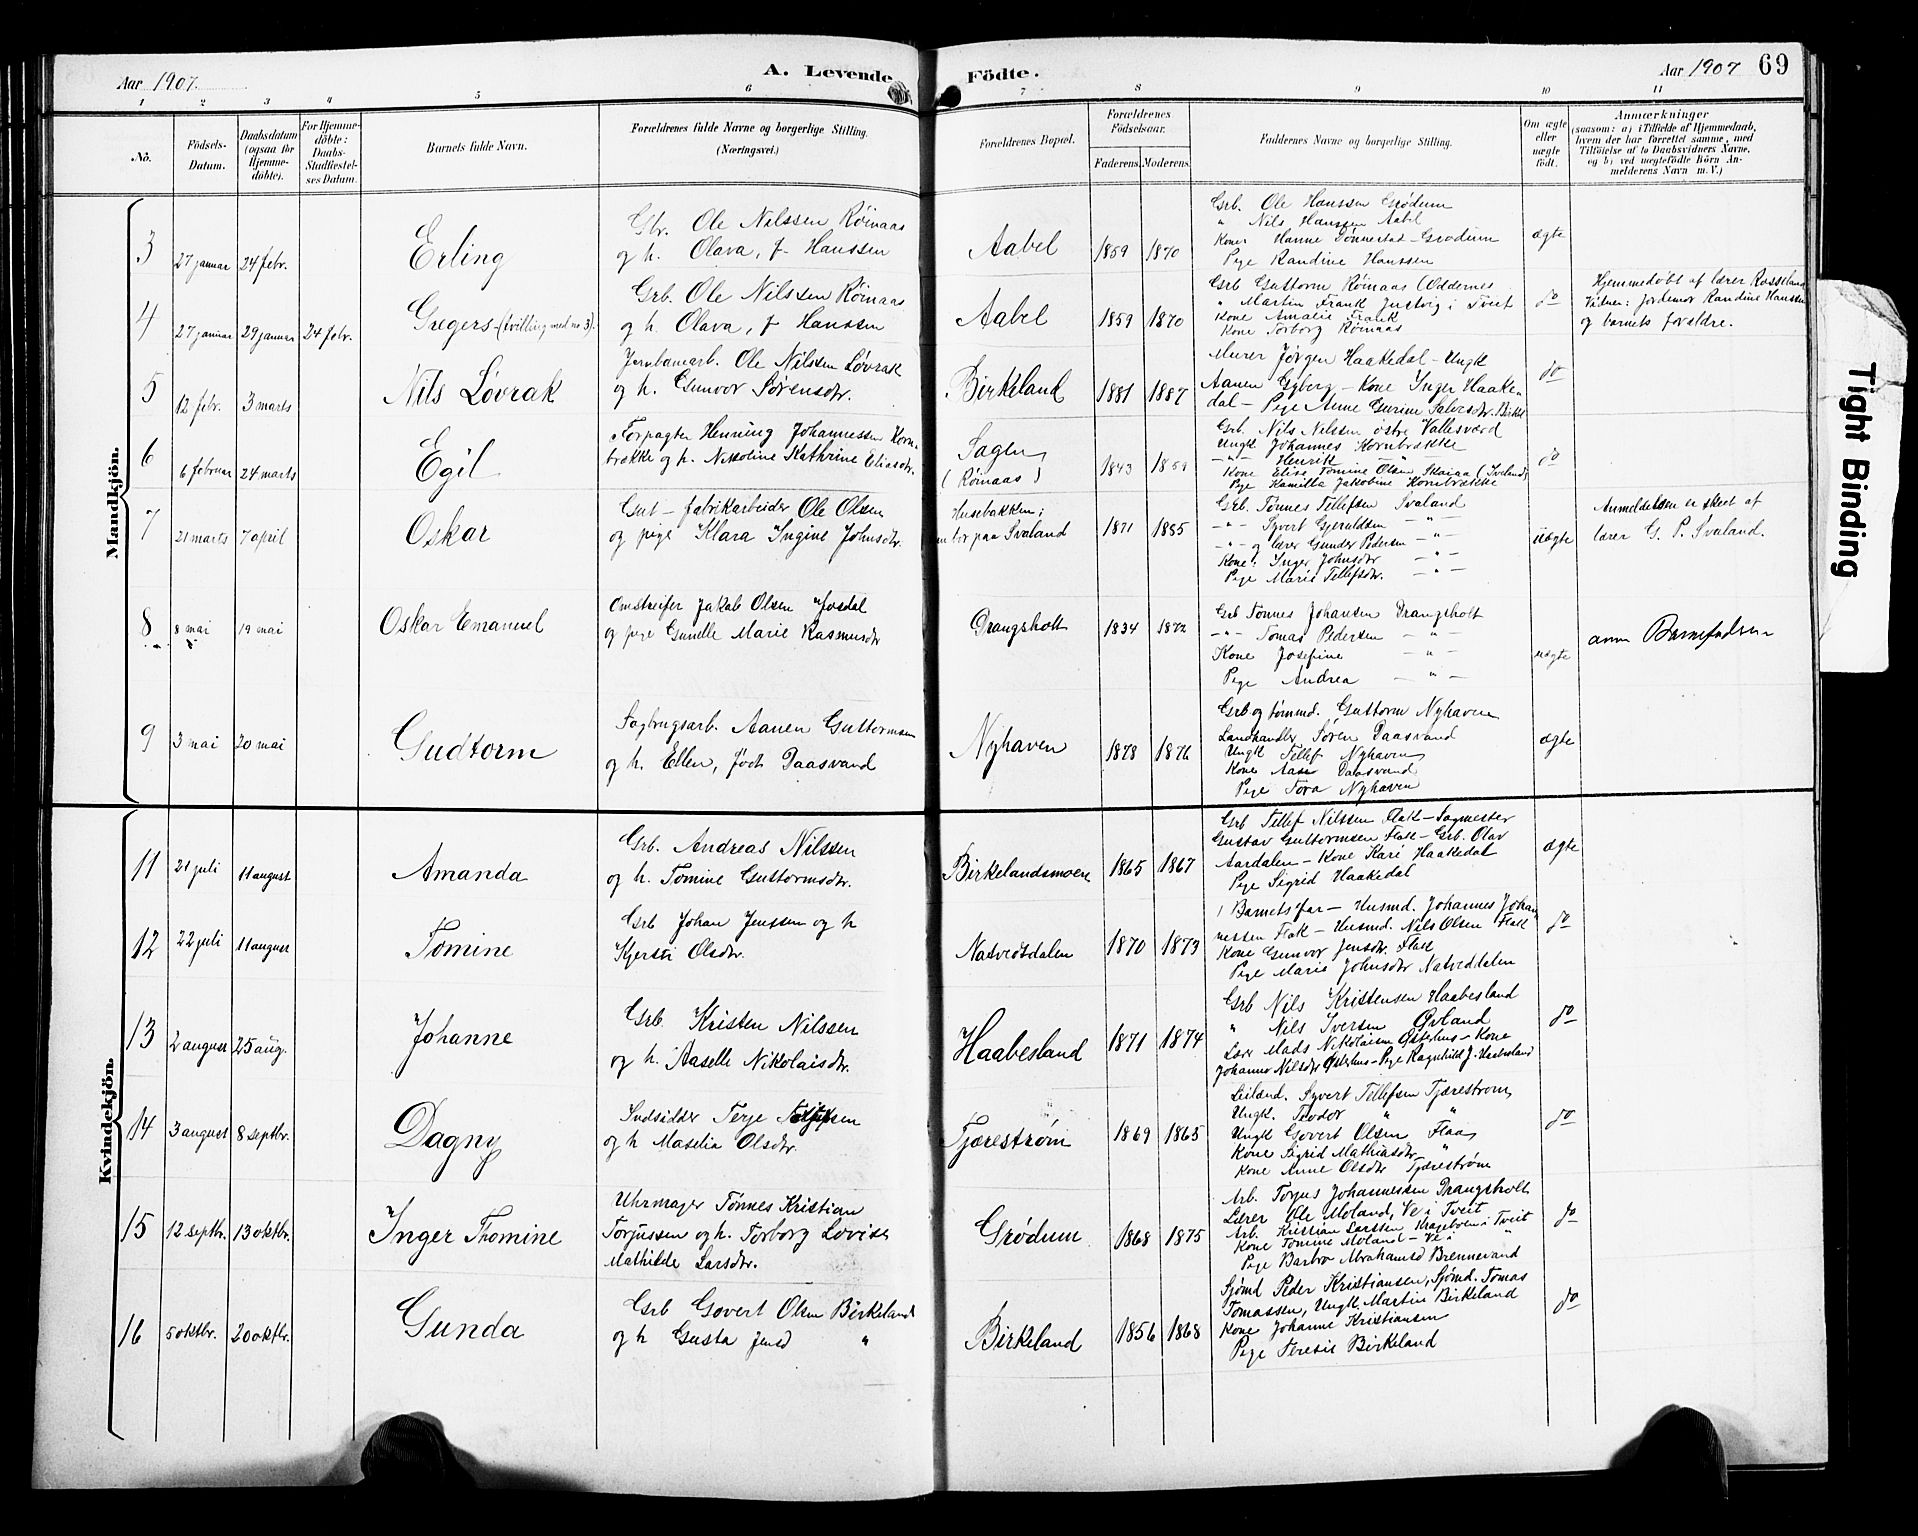 Aar 1907.
A. Levende Födte.
Aar 1907
69
1 2 3 4 5 6 7 8 9 10 11
No.
Födsels-Datum.
Daabsdatum (ogsaa för Hjemme-döbte).
For Hjemme-döbte: Daabs-Stadfæstel-ses Datum.
Barnets fulde Navn.
Forældrenes fulde Navne og borgerlige Stilling.
(Næringsvei.)
Forældrenes Bopæl.
Forældrenes Födselsaar.
Faderens. Moderens.
Faddernes Navne og borgerlige Stilling.
Om ægte eller uægte födt.
Anmærkninger
(saasom: a) i Tilfælde af Hjemmedaab,
hvem der har forrettet samme, med
Tilföielse af to Daabsvidners Navne,
og b) ved uægtefödte Börn An-
melderens Navn m. V.)
Mandkjön.
3
27 januar
24 febr.
Erling
Gbr. Ole Nilssen Röinaas
og h. Olava, f. Hanssen
Aabel
1859
1870
Grb. Ole Hanssen Grødum
" Nils Hanssen Aabel
Kone: Hanne Tønnestad-Grødum
Pige Randine Hanssen
ægte
4
27 januar
29 januar
24 febr.
Gregers (tvilling med no 3).
Grb. Ole Nilssen Röinaas
og h. Olava, f. Hanssen
Aabel
1859
1870
Grb Guttorm Röinaas (Oddernes
" Martin Frank Justvig i Tveit
Kone Amalie Frank
Kone Torborg Röinaas
do
Hjemmedöbt af lærer Rosseland
Vitner: jordemor Randine Hanssen
og barnets forældre.
5
12 febr.
3 marts
Nils Løvrak
Jernbanearb. Ole Nilssen Løvrak
og h. Gunvor Sørensdtr.
Birkeland
1881
1887
Murer Jørgen Haakedal - Ungk
Aanen Egberg - Kone Inger Haake-
dal - Pige Anne Gurine Salvesdtr. Birkel
do
6
6 februar
24 marts
Egil
Forpagter Henning Johannessen Korn-
brække og h. Nikoline Kathrine Eliasdtr.
Sagen
(Röinaas)
1843
1859
Grb. Nils Nilssen østre Vallesværd
Ungk Johannes Kornbrække
-"- Henrik -"-
Kone Elise Tomine Olsen Skaiaa (Iveland)
Pige Kamilla Jakobine Kornbrække
do
7
21 marts
7 april
Oskar
Gut - fabrikarbeider Ole Olsen
og pige Klara Ingine Johnsdtr.
Husebakken;
mor paa Svaland
1871
1885
Grb. Tønnes Tellefsen Svaland
-"- Syvert Gjeruldsen -"-
-"- og lærer Gunder Pedersen -"-
Kone: Inger Johnsdtr -"-
Pige Marie Tellefsdtr. -"-
uægte
Anmeldelsen er skeet af
lærer G. P. Svaland.
8
8 mai
19 mai
Oskar Emanuel
Omstreifer Jakob Olsen Josdal
og pige Gunelle Marie Rasmusdtr
Drangsholt
1834
1872
Grb Tønnes Johansen Drangsholt
-"- Tomas Pedersen -"-
Kone Josefine -"-
Pige Andrea -"-
uægte
anm Barnefaderen
9
3 mai
20 mai
Gudtorm
Sagbrugsarb. Aanen Guttormsen
og h. Ellen, født Daasvand
Nyhaven
1878
1876
Grb og tømmd. Guttorm Nyhaven
Landhandler Søren Daasvand
Ungk Tellef Nyhaven
Kone Aase Daasvand
Pige Tora Nyhaven
ægte
Kvindekjön.
11
21 juli
11 august
Amanda
Grb. Andreas Nilssen
og h. Tomine Guttormsdtr.
Birkelandsmoen
1865
1867
Grb Tellef Nilssen Flak - Sagmester
Gustav Guttormsen Flak - Grb. Olav
Aardalen - Kone Kari Haakedal
Pige Sigrid Haakedal
ægte
12
22 juli
11 august
Tomine
Grb Johan Jenssen og h
Kjersti Olsdtr.
Natvedtdalen
1870
1873
Barnets far - Husmd. Johannes Johan
nessen Flak - Husmd. Nils Olsen Flak
Kone Gunvor Jensdtr. Flak
Pige Marie Johnsdtr Natveddalen
do
13
2 august
25 aug.
Johanne
Grb. Kristen Nilssen
og h. Aaselle Nikolaisdtr.
Haabesland
1871
1874
Grb Nils Kristensen Haabesland
" Nils Iversen Øvland
Lærer Mads Nikolaisen Østerhus - Kone
Johanne Nilsdtr Østerhus - Pige Ragnhild J. Haabesland
do
14
3 august
8 septbr.
Dagny
Indsidder Terje
og h Maselia Olsdtr.
Tjærestrøm
1869
1865
Leilænd. Syvert Tellefsen Tjærestrøm
Ungk. Teodor " "
Ungk Govert Olsen Flaa
Kone Sigrid Mathiasdtr "
Kone Anne Olsdtr Tjærestrøm
do
15
12 septbr.
13 oktbr.
Inger Thomine
Uhrmager Tønnes Kristian
Torjussen og h. Torborg Lovise
Mathilde Larsdtr.
Grødum
1868
1875
Arb. Torjus Johannessen Drangsholt
Lærer Ole Moland, Ve i Tveit
Arb. Kristian Larssen Krageboen i Tveit
Kone Tomine Moland - Ve i "
Pige Barbro Abrahamsd Brennevand
do
16
5 oktbr.
20 oktbr.
Gunda
Grb Govert Olsen Birkeland
og h Gusta Jensd "
Birkeland
1856
1868
Sjømd Peder Kristiansen, Sjømd. Tomas
Tomassen, Ungk. Martin Birkeland
Kone Johanne Kristiansen
Pige Teresie Birkeland
do
Tight Binding